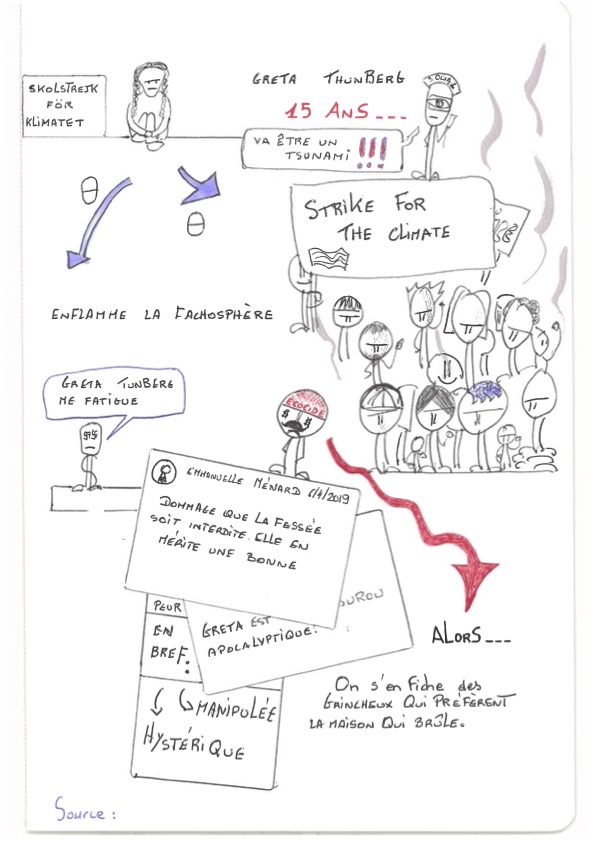 SKOLSTREJK
FÖR
KLIMATET
GRETA THUNBERG
15 ANS...
VA ÊTRE UN
TSUNAMI !!!
STRIKE FOR
THE CLIMATE
ENFLAMME LA FACHOSPHÈRE
GRETA TUNBERG
ME FATIGUE
ECOCIDE
EMMANUELLE MÉNARD 6/4/2019
DOMMAGE QUE LA FESSÉE
SOIT INTERDITE. ELLE EN
MÉRITE UNE BONNE
GRETA EST
APOCALYPTIQUE.
PEUR
EN
BREF:
MANIPULÉE
HYSTÉRIQUE
ALORS...
On s'en fiche des
GRINCHEUX QUI PRÉFÈRENT
LA MAISON QUI BRÛLE.
Source :